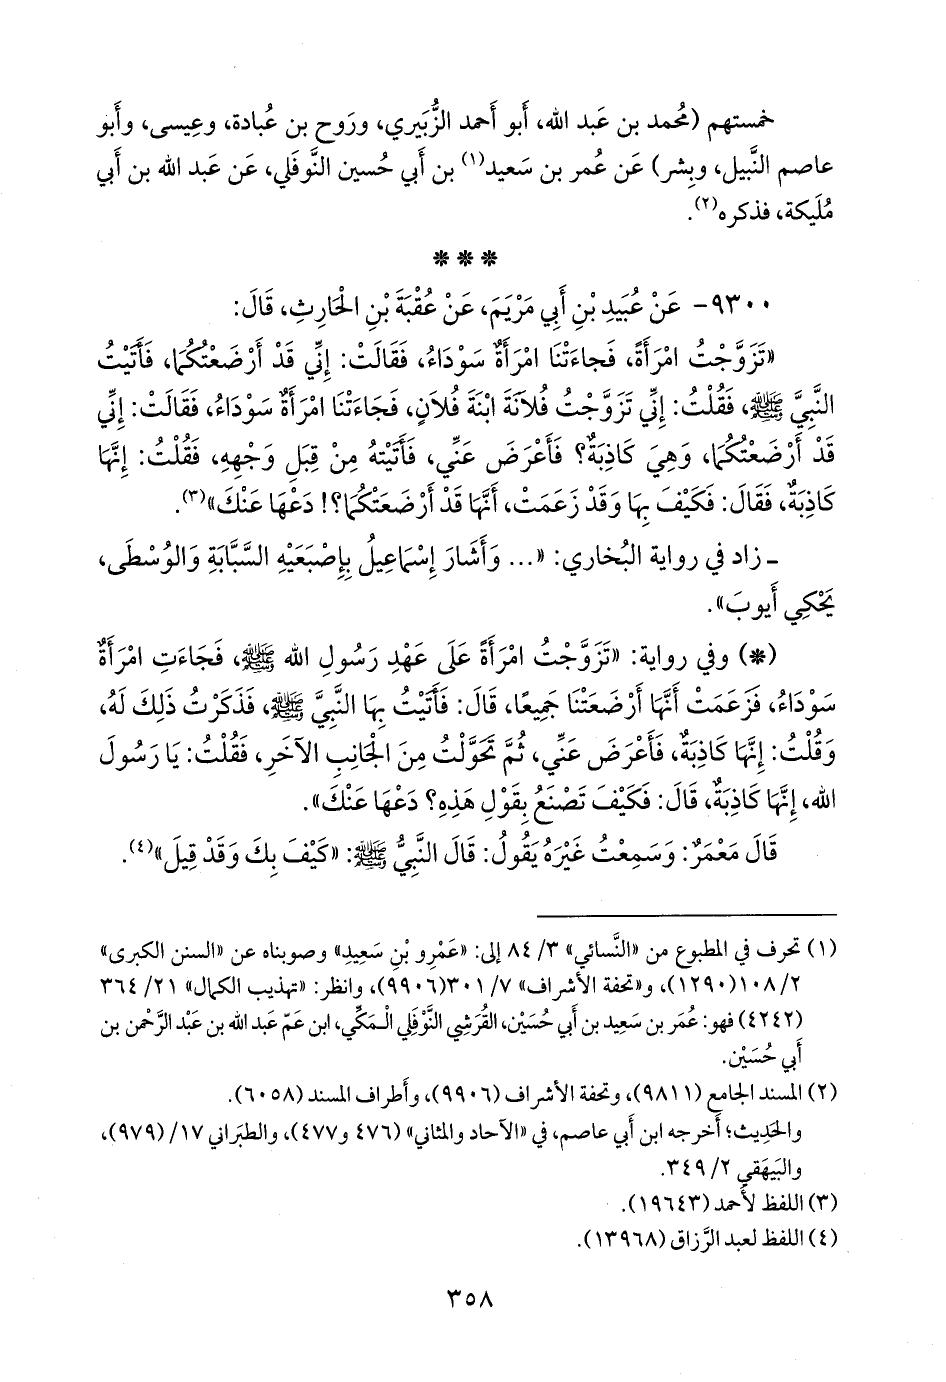 خمستهم (مُحمد بن عَبد الله، أَبو أَحمد الزُّبَيري، ورَوح بن عُبادة، وعِيسى، وأَبو
عاصم النَّبيل، وبِشر) عَن عُمر بن سَعيد(١) بن أَبي حُسين النَّوفَلي، عَن عَبد الله بن أَبي
مُلَيكة، فذكره(٢).
* * *
٩٣٠٠- عَنْ عُبَيدِ بْنِ أَبِي مَرْيَمَ، عَنْ عُقْبَةَ بْنِ الْحَارِثِ، قَالَ:
«تَزَوَّجْتُ امْرَأَةً، فَجَاءَتْنَا امْرَأَةٌ سَوْدَاءُ، فَقَالَتْ: إِنِّي قَدْ أَرْضَعْتُكُمَا، فَأَتَيْتُ
النَّبِيَّ ﷺ، فَقُلْتُ: إِنِّي تَزَوَّجْتُ فُلَانَةَ ابْنَةَ فُلَانٍ، فَجَاءَتْنَا امْرَأَةٌ سَوْدَاءُ، فَقَالَتْ: إِنِّي
قَدْ أَرْضَعْتُكُمَا، وَهِيَ كَاذِبَةٌ؟ فَأَعْرَضَ عَنِّي، فَأَتَيْتُهُ مِنْ قِبَلِ وَجْهِهِ، فَقُلْتُ: إِنَّهَا
كَاذِبَةٌ، فَقَالَ: فَكَيْفَ بِهَا وَقَدْ زَعَمَتْ، أَنَّهَا قَدْ أَرْضَعَتْكُمَا؟! دَعْهَا عَنْكَ»(٣).
ـ زاد في رواية البُخاري: «... وَأَشَارَ إِسْمَاعِيلُ بِإِصْبَعَيْهِ السَّبَّابَةِ وَالوُسْطَى،
يَحْكِي أَيوبَ».
(*) وفي رواية: «تَزَوَّجْتُ امْرَأَةً عَلَى عَهْدِ رَسُولِ الله ﷺ، فَجَاءَتِ امْرَأَةٌ
سَوْدَاءُ، فَزَعَمَتْ أَنَّهَا أَرْضَعَتْنَا جَمِيعًا، قَالَ: فَأَتَيْتُ بِهَا النَّبِيَّ ﷺ، فَذَكَرْتُ ذَلِكَ لَهُ،
وَقُلْتُ: إِنَّهَا كَاذِبَةٌ، فَأَعْرَضَ عَنِّي، ثُمَّ تَحَوَّلْتُ مِنَ الْجَانِبِ الآخَرِ، فَقُلْتُ: يَا رَسُولَ
الله، إِنَّهَا كَاذِبَةٌ، قَالَ: فَكَيْفَ تَصْنَعُ بِقَوْلِ هَذِهِ؟ دَعْهَا عَنْكَ».
قَالَ مَعْمَرٌ: وَسَمِعْتُ غَيْرَهُ يَقُولُ: قَالَ النَّبِيُّ ﷺ: «كَيْفَ بِكَ وَقَدْ قِيلَ»(٤).
(١) تحرف في المطبوع من «النَّسائي» ٣/ ٨٤ إلى: «عَمْرِو بْنِ سَعِيدٍ» وصوبناه عن «السنن الكبرى»
٢/ ١٠٨(١٢٩٠)، و«تحفة الأشراف» ٧/ ٣٠١(٩٩٠٦)، وانظر: «تهذيب الكمال» ٢١/ ٣٦٤
(٤٢٤٢) فهو: عُمَر بن سَعِيد بن أَبي حُسَيْن، القُرَشِي النَّوْفَلي الْمَكِّي، ابن عَمّ عَبد الله بن عَبْد الرَّحْمن بن
أَبي حُسَيْن.
(٢) المسند الجامع (٩٨١١)، وتحفة الأشراف (٩٩٠٦)، وأَطراف المسند (٦٠٥٨).
والحَدِيث؛ أَخرجه ابن أَبي عاصم، في «الآحاد والمثاني» (٤٧٦ و٤٧٧)، والطَبَراني ١٧/ (٩٧٩)،
والبَيهَقي ٢/ ٣٤٩.
(٣) اللفظ لأَحمد (١٩٦٤٣).
(٤) اللفظ لعبد الرَّزاق (١٣٩٦٨).
٣٥٨